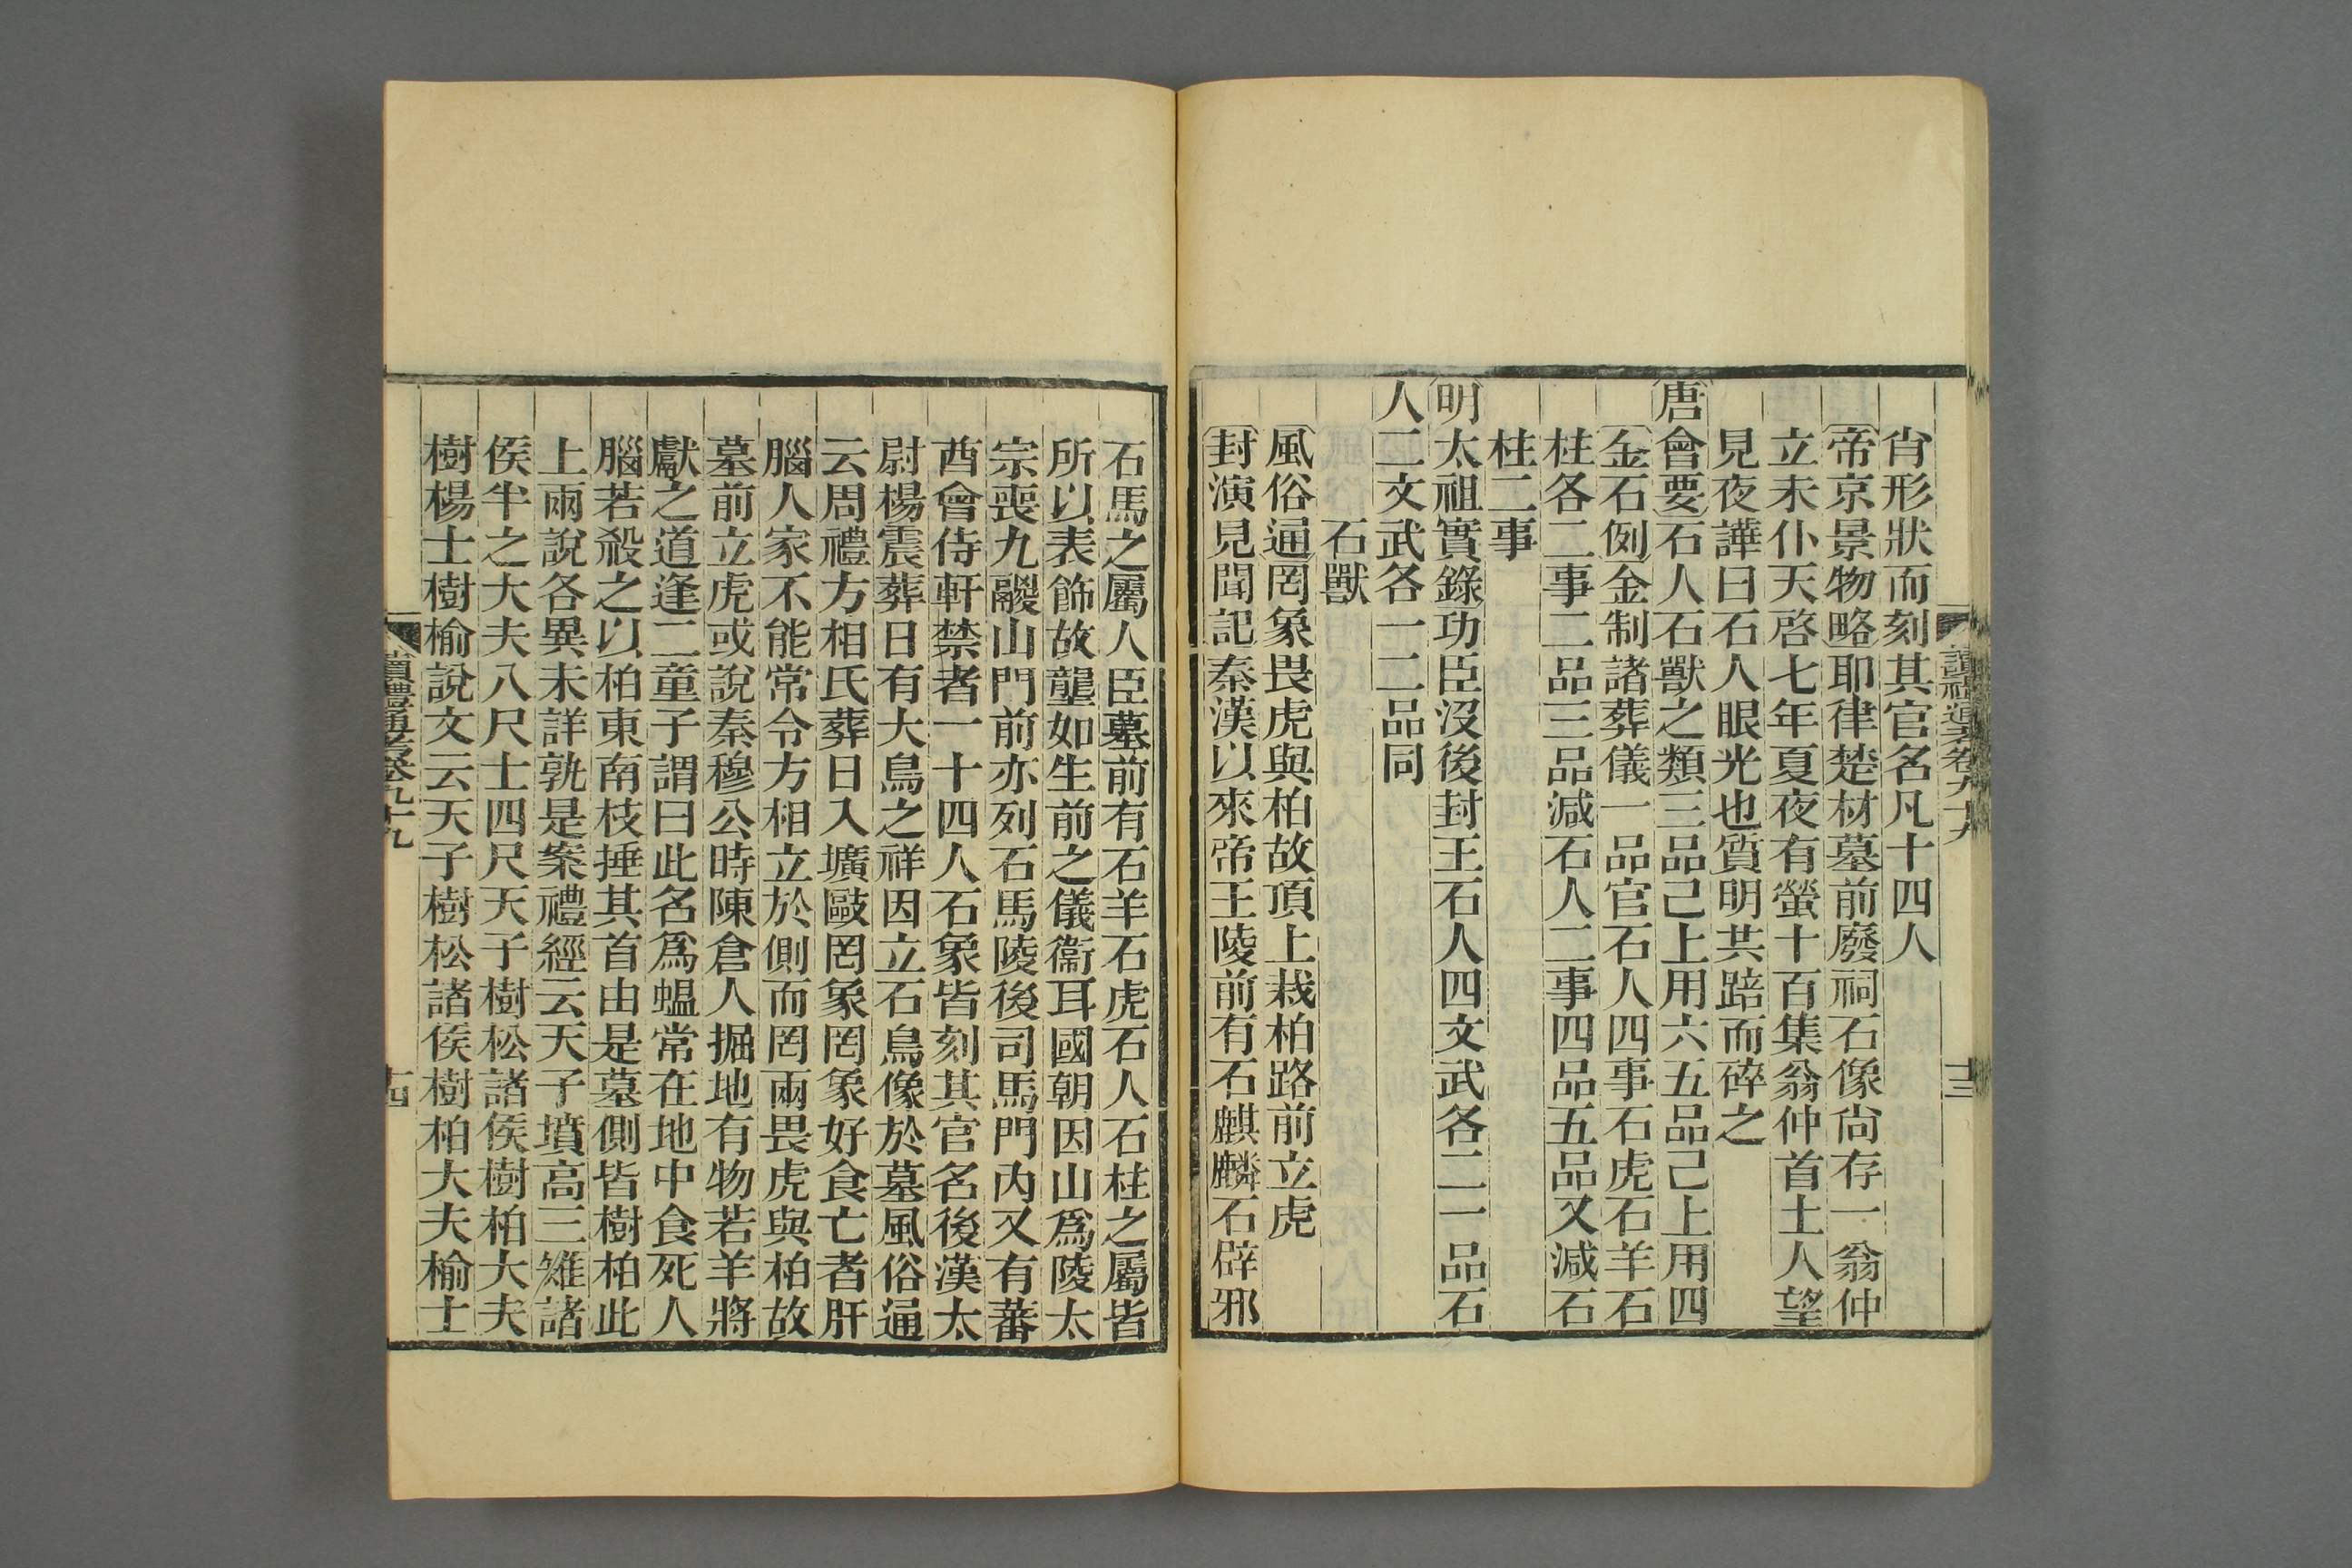 讀禮通考卷九十九
十三
肖形狀而刻其官名凡十四人
帝京景物略耶律楚材墓前廢祠石像尙存一翁仲
立未仆天啓七年夏夜有螢十百集翁仲首土人望
見夜譁曰石人眼光也質明共踣而碎之
唐會要石人石獸之類三品己上用六五品己上用四
金石例金制諸葬儀一品官石人四事石虎石羊石
柱各二事二品三品減石人二事四品五品又減石
柱二事
明太祖實錄功臣沒後封王石人四文武各二一品石
人二文武各一二品同
石獸
風俗通罔象畏虎與柏故頂上栽柏路前立虎
封演見聞記秦漢以來帝王陵前有石麒麟石辟邪
石馬之屬人臣墓前有石羊石虎石人石柱之屬皆
所以表飾故壟如生前之儀衞耳國朝因山爲陵太
宗喪九嵏山門前亦列石馬陵後司馬門內又有蕃
酋會侍軒禁者一十四人石象皆刻其官名後漢太
尉楊震葬日有大鳥之祥因立石鳥像於墓風俗通
云周禮方相氏葬日入壙毆罔象罔象好食亡者肝
腦人家不能常令方相立於側而罔兩畏虎與柏故
墓前立虎或說秦穆公時陳倉人掘地有物若羊將
獻之道逢二童子謂曰此名爲蝹常在地中食死人
腦若殺之以柏東南枝捶其首由是墓側皆樹柏此
上兩說各異未詳孰是案禮經云天子墳高三雉諸
侯半之大夫八尺士四尺天子樹松諸侯樹柏大夫
樹楊士樹榆說文云天子樹松諸侯樹柏大夫榆士
讀禮通考卷九十九
十四